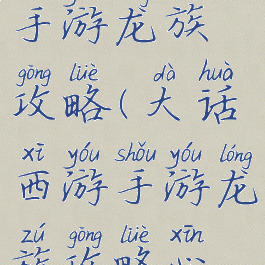 手游龙族
gōng lüè dà huà
攻略(大话
xī yóu shǒu yóu lóng
西游手游龙
zú gōng lüè xīn
族攻略心